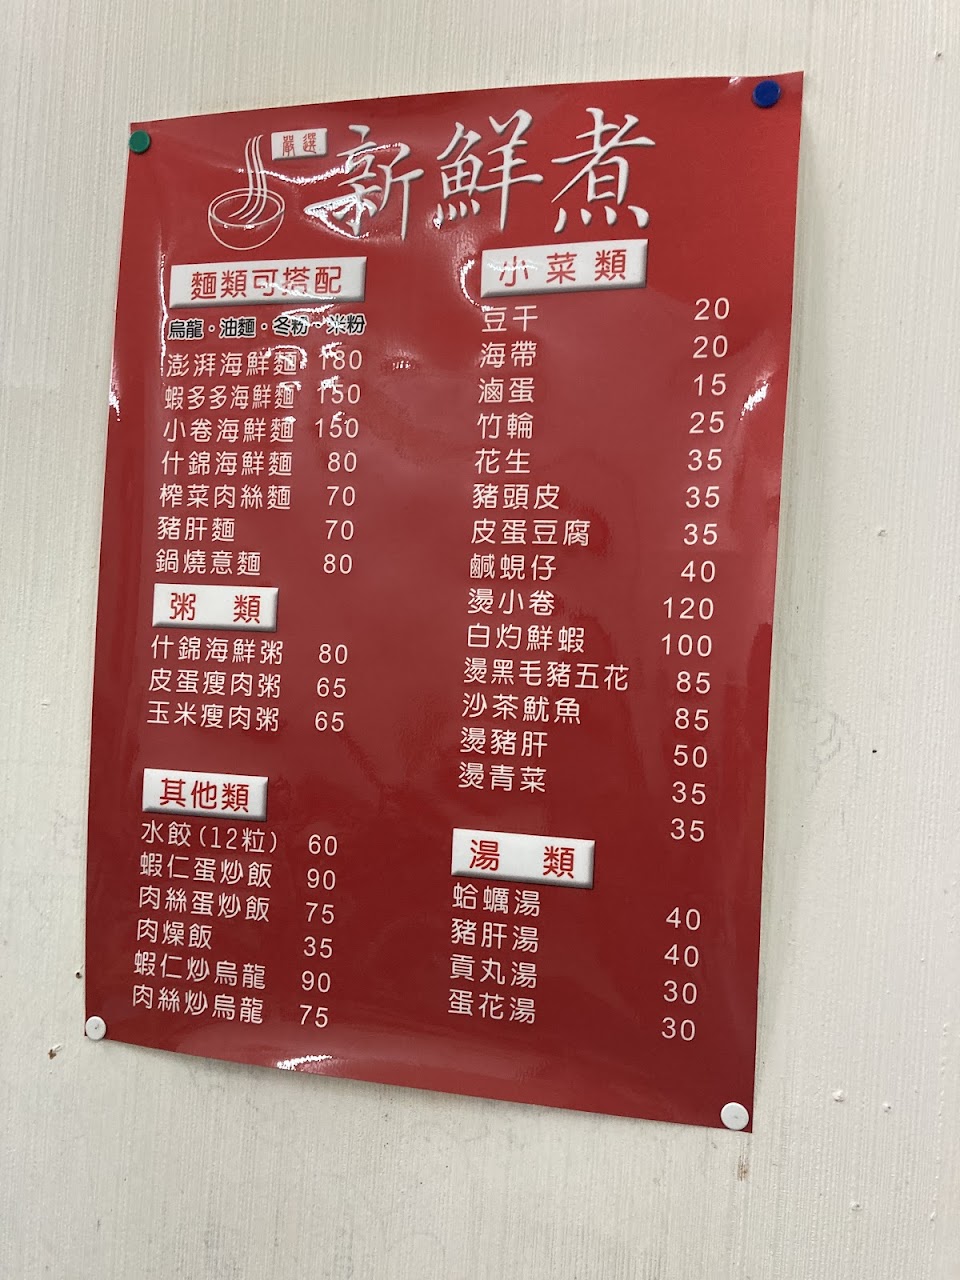 嚴選
新鮮煮
麵類可搭配
烏龍·油麵·冬粉·米粉
澎湃海鮮麵 180
蝦多多海鮮麵 150
小卷海鮮麵 150
什錦海鮮麵 80
榨菜肉絲麵 70
豬肝麵 70
鍋燒意麵 80
粥 類
什錦海鮮粥 80
皮蛋瘦肉粥 65
玉米瘦肉粥 65
其他類
水餃(12粒) 60
蝦仁蛋炒飯 90
肉絲蛋炒飯 75
肉燥飯 35
蝦仁炒烏龍 90
肉絲炒烏龍 75
小菜類
豆干 20
海帶 20
滷蛋 15
竹輪 25
花生 35
豬頭皮 35
皮蛋豆腐 35
鹹蜆仔 40
燙小卷 120
白灼鮮蝦 100
燙黑毛豬五花 85
沙茶魷魚 85
燙豬肝 50
燙青菜 35
35
湯 類
蛤蠣湯 40
豬肝湯 40
貢丸湯 30
蛋花湯 30